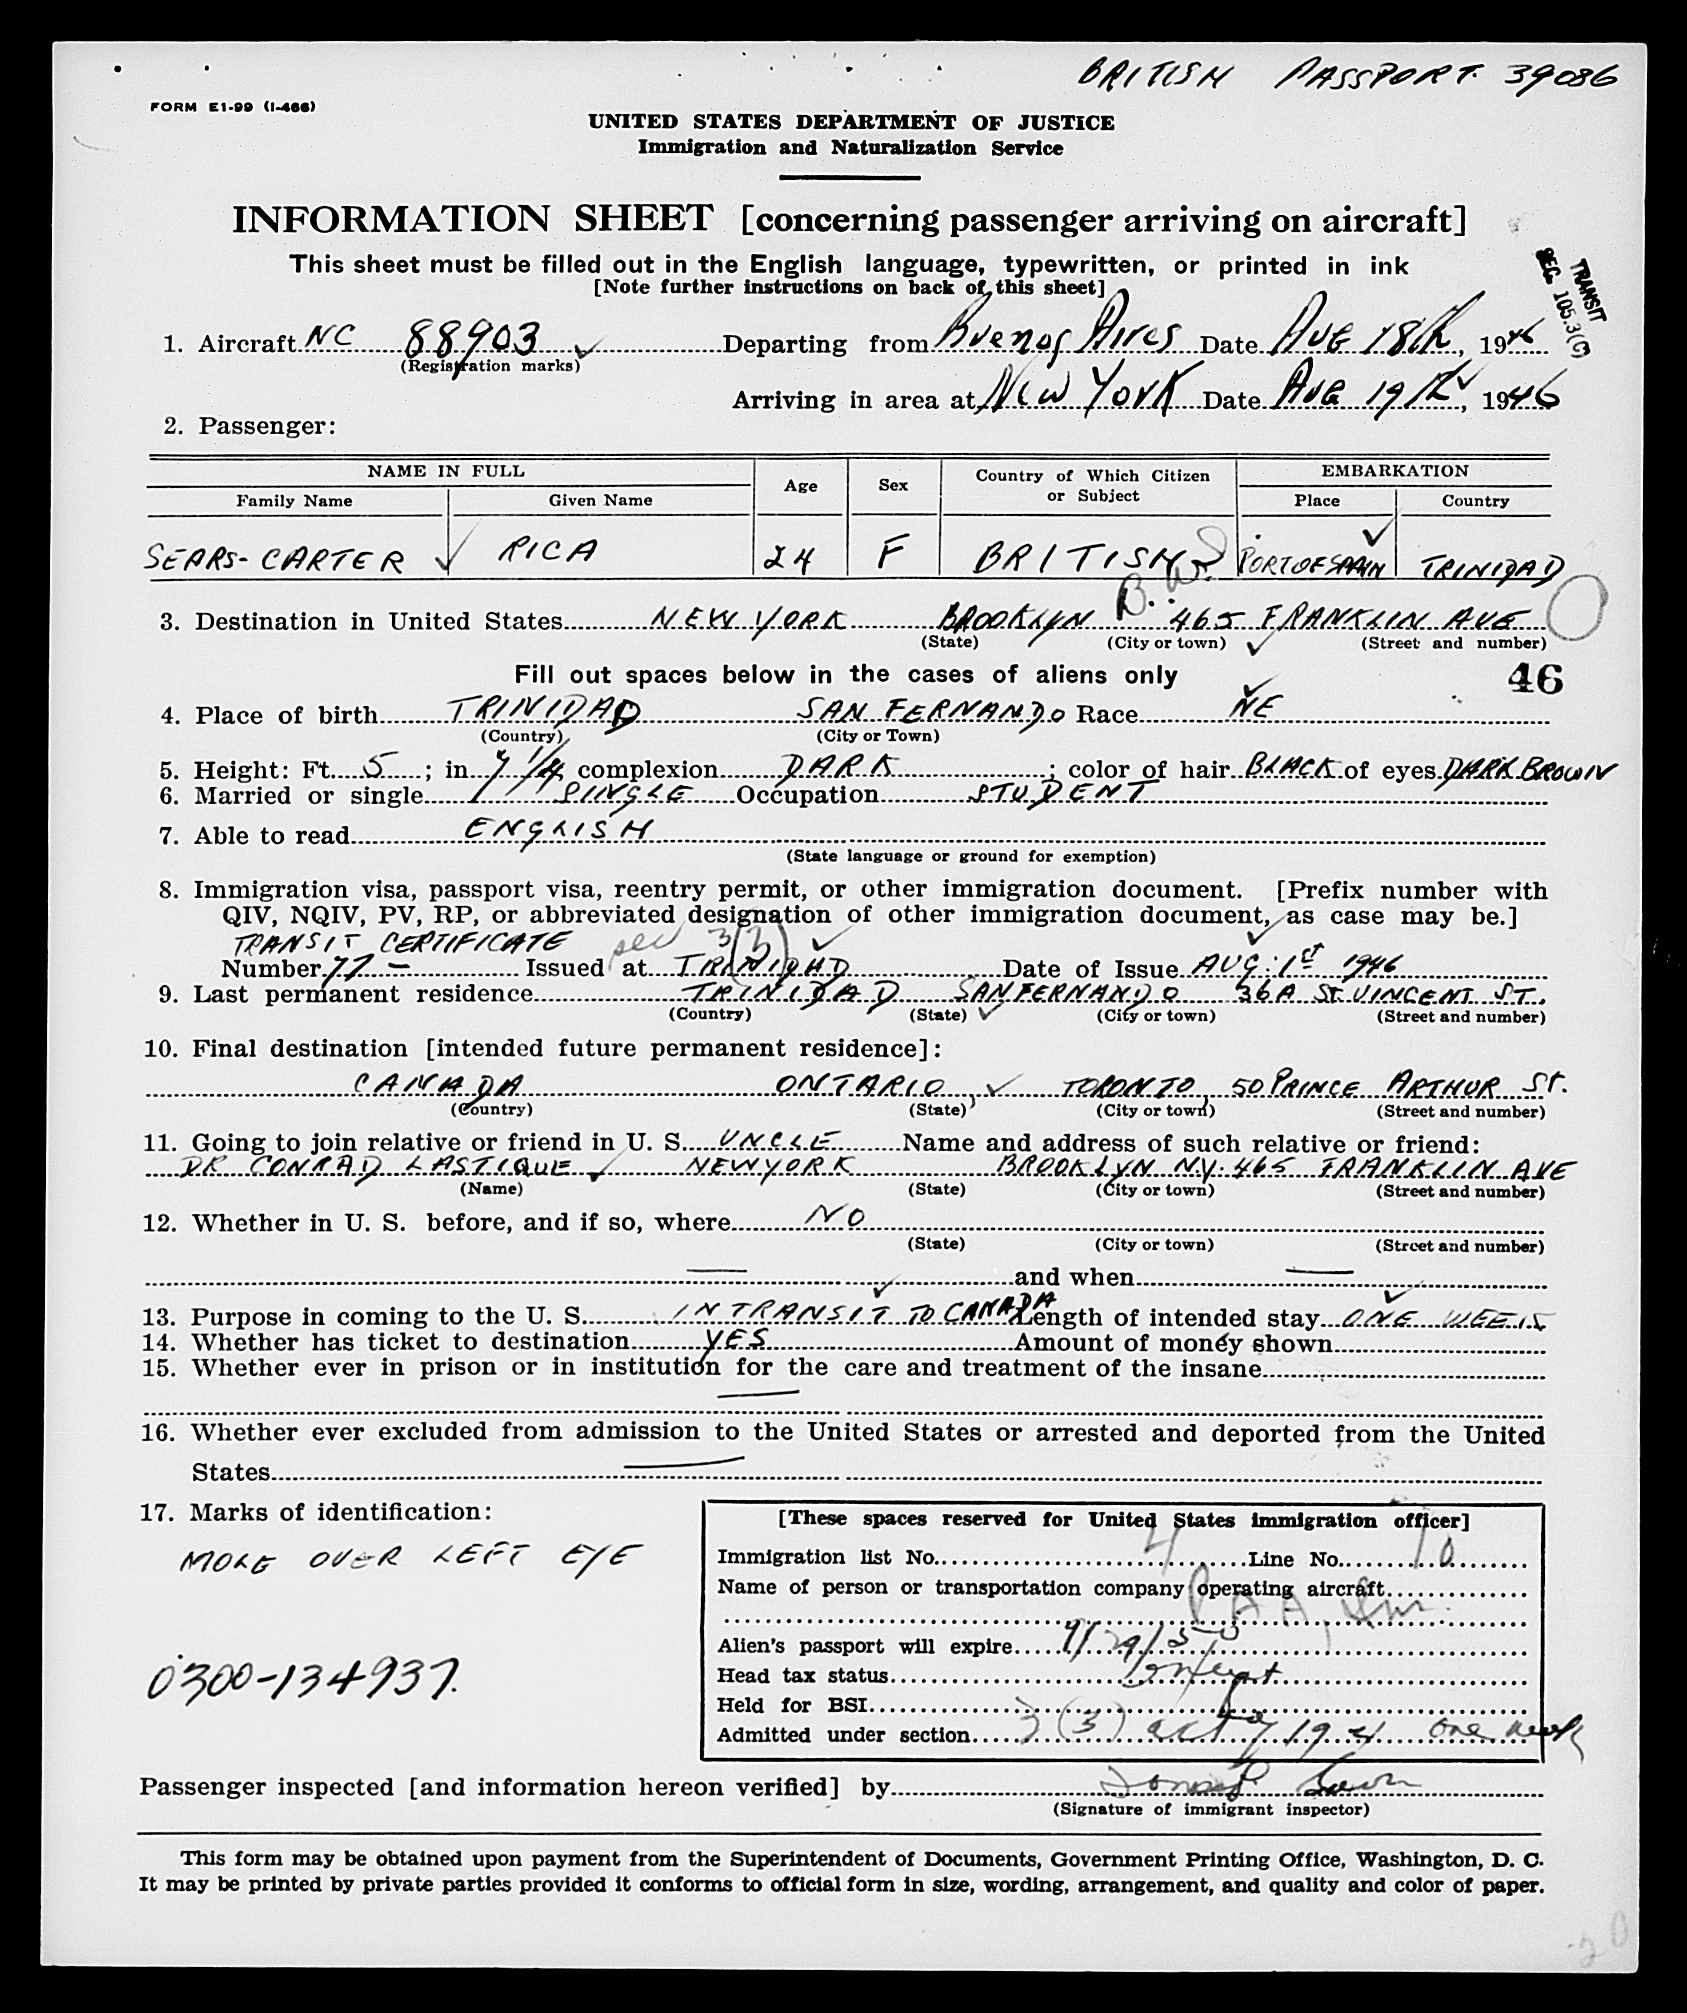 BRITISH PASSPORT. 39086
FORM E1-99 (I-466)
UNITED STATES DEPARTMENT OF JUSTICE
Immigration and Naturalization Service
INFORMATION SHEET [concerning passenger arriving on aircraft]
This sheet must be filled out in the English language, typewritten, or printed in ink
[Note further instructions on back of this sheet]
TRANSIT
SEC. 105.3(C)
1. Aircraft NC 88903 Departing from Buenos Aires Date AUG 18th, 1946
(Registration marks)
Arriving in area at New York Date Aug 19th, 1946
2. Passenger:
NAME IN FULL Age Sex Country of Which Citizen or Subject EMBARKATION
Family Name Given Name Place Country
SEARS-CARTER RICA 24 F BRITISH PORT OF SPAIN TRINIDAD
B.W.
3. Destination in United States NEW YORK BROOKLYN 465 FRANKLIN AVE
(State) (City or town) (Street and number)
Fill out spaces below in the cases of aliens only 46
4. Place of birth TRINIDAD SAN FERNANDO Race NE
(Country) (City or Town)
5. Height: Ft. 5; in. 7 1/4 complexion DARK; color of hair BLACK of eyes DARK BROWN
6. Married or single SINGLE Occupation STUDENT
7. Able to read ENGLISH
(State language or ground for exemption)
8. Immigration visa, passport visa, reentry permit, or other immigration document. [Prefix number with
QIV, NQIV, PV, RP, or abbreviated designation of other immigration document, as case may be.]
TRANSIT CERTIFICATE sec 3(3)
Number 77 - Issued at TRINIDAD Date of Issue AUG: 1st 1946
9. Last permanent residence TRINIDAD SAN FERNANDO 36A ST. VINCENT ST.
(Country) (State) (City or town) (Street and number)
10. Final destination [intended future permanent residence]:
CANADA ONTARIO, TORONTO, 50 PRINCE ARTHUR St.
(Country) (State) (City or town) (Street and number)
11. Going to join relative or friend in U. S. UNCLE Name and address of such relative or friend:
DR CONRAD LASTIQUE NEW YORK BROOKLYN N.Y. 465 FRANKLIN AVE
(Name) (State) (City or town) (Street and number)
12. Whether in U. S. before, and if so, where NO
(State) (City or town) (Street and number)
— and when —
13. Purpose in coming to the U. S. IN TRANSIT TO CANADA Length of intended stay ONE WEEK
14. Whether has ticket to destination YES Amount of money shown
15. Whether ever in prison or in institution for the care and treatment of the insane
—
16. Whether ever excluded from admission to the United States or arrested and deported from the United
States —
17. Marks of identification:
MOLE OVER LEFT EYE
0300-134937.
[These spaces reserved for United States immigration officer]
Immigration list No. 4 Line No. 10
Name of person or transportation company operating aircraft
PAA, Inc.
Alien's passport will expire 9/29/50
Head tax status
Held for BSI
Admitted under section 3(3) act of 1924 one week
Passenger inspected [and information hereon verified] by
(Signature of immigrant inspector)
This form may be obtained upon payment from the Superintendent of Documents, Government Printing Office, Washington, D. C.
It may be printed by private parties provided it conforms to official form in size, wording, arrangement, and quality and color of paper.